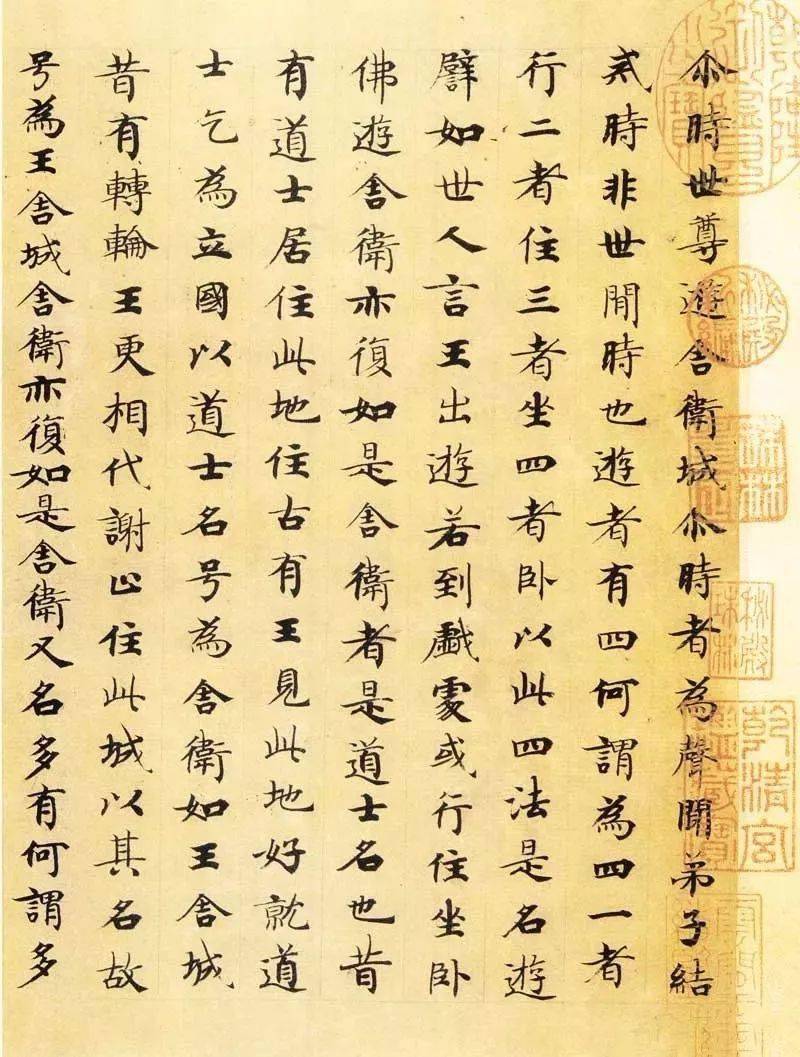 尒時世尊遊舎衛城尒時者為聲聞弟子結
戒時非世間時也遊者有四何謂為四一者
行二者住三者坐四者卧以此四法是名遊
譬如世人言王出遊若到戯處或行住坐卧
佛遊舎衛亦復如是舎衛者是道士名也昔
有道士居住此地住古有王見此地好就道
士乞為立國以道士名号為舎衛如王舎城
昔有轉輪王更相代謝止住此城以其名故
号為王舎城舎衛亦復如是舎衛又名多有何謂多
秘殿珠林
乾清宮鑒藏寶